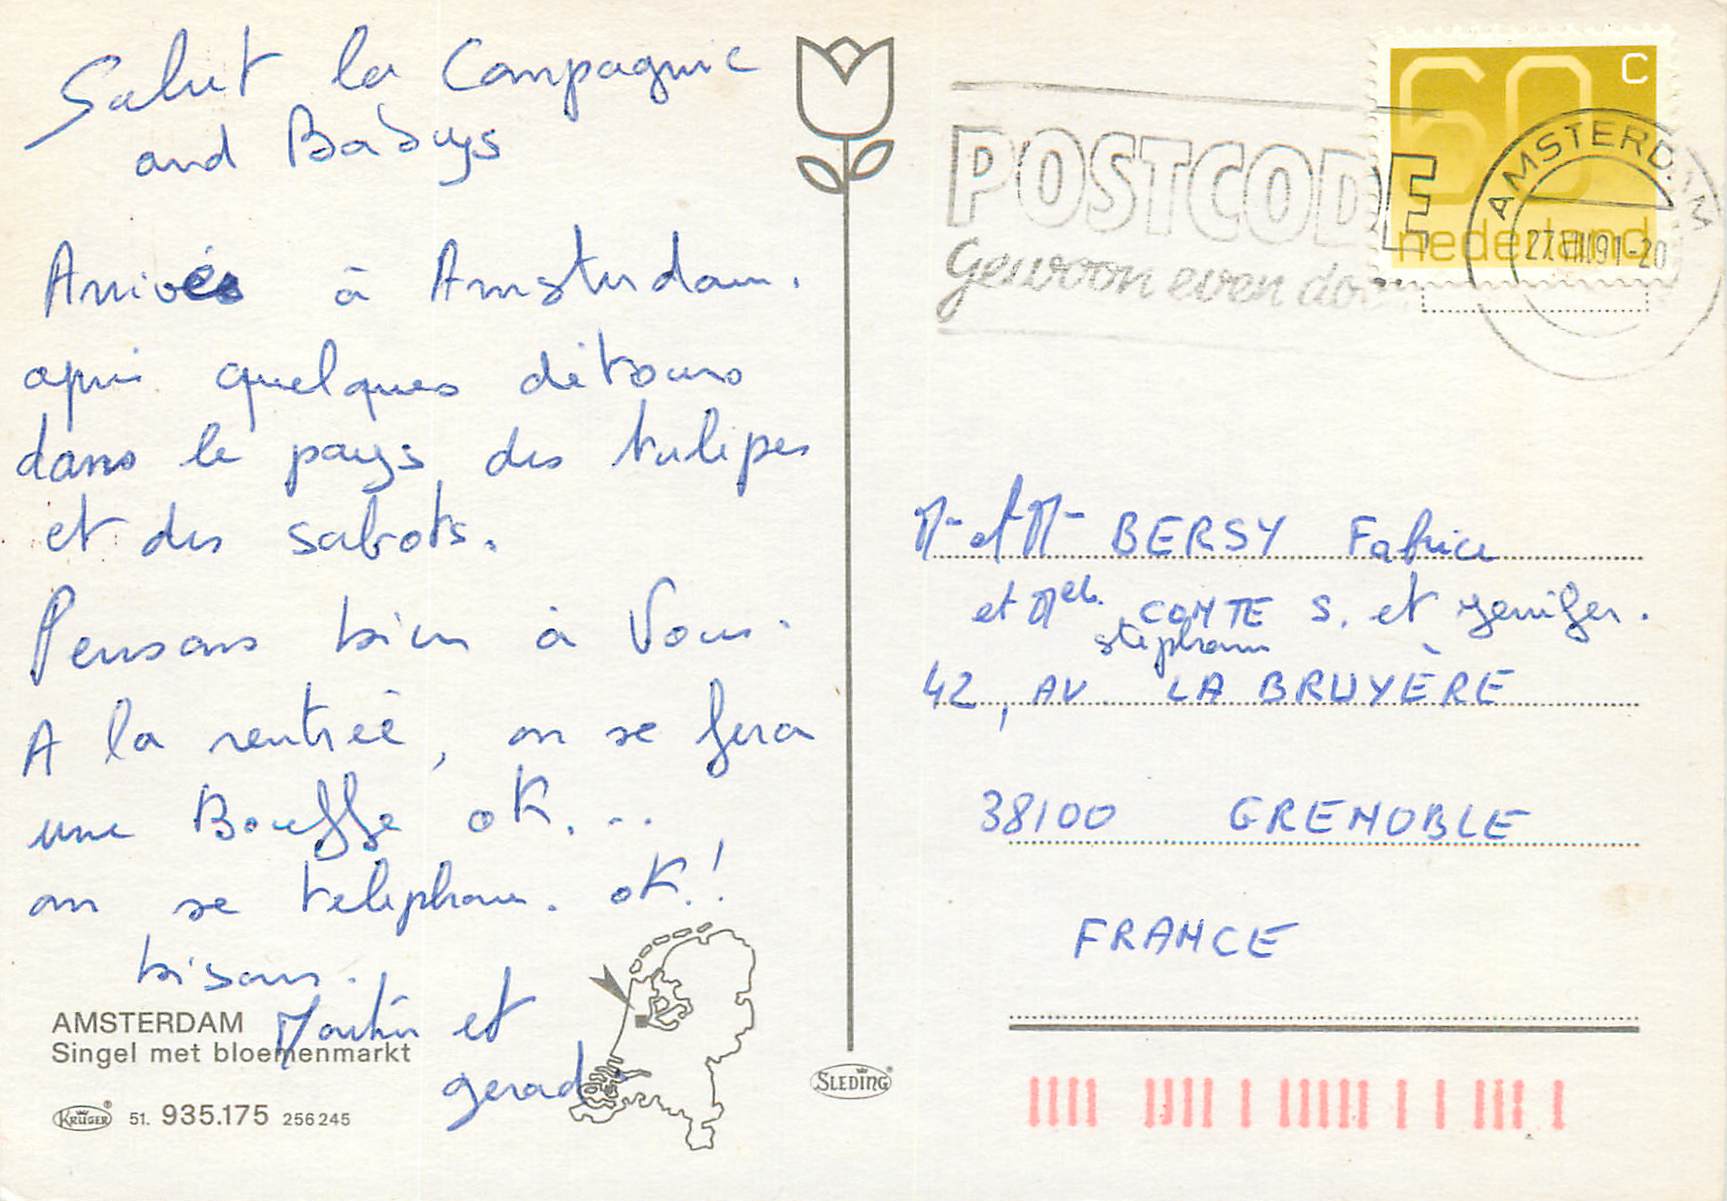 Salut la Compagnie
and Baduys
Arrivés à Amsterdam.
après quelques détours
dans le pays des tulipes
et des sabots.
Pensons bien à Vous.
A la rentrée, on se fera
une Bouffe oK...
on se telephone. oK.!
bisous.
Martin et
gerad
AMSTERDAM
Singel met bloemenmarkt
KRÜGER 51. 935.175 256245
SLEDING
60 C
nederland
POSTCODE
Gewoon even doen
AMSTERDAM
27.VIII.91-20
Mr et Mr BERSY Fabrice
et Melle COMTE S. et Jenifer.
stephane
42, AV. LA BRUYÈRE
38100 GRENOBLE
FRANCE